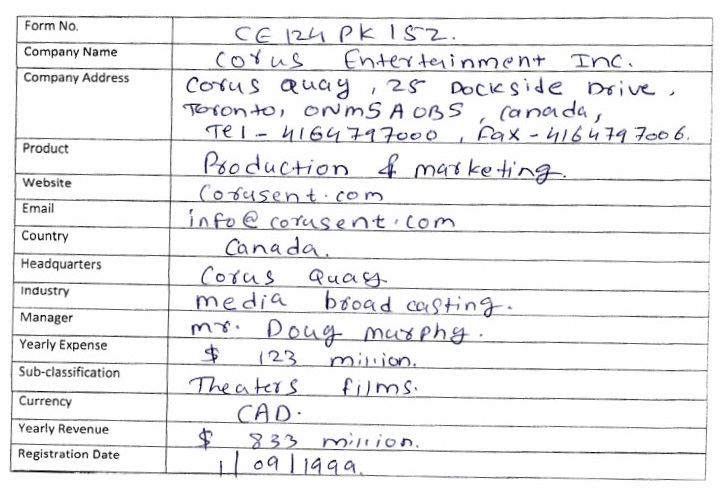 Form No. CE124PK152.
Company Name Corus Entertainment Inc.
Company Address Corus Quay, 25 Dockside Drive,
Toronto, ONM5A0B5, Canada,
Tel-4164797000, Fax-4164797006.
Product Production & marketing.
Website Corusent.com
Email info@corusent.com
Country Canada.
Headquarters Corus Quay
Industry media broadcasting.
Manager mr. Doug murphy.
Yearly Expense $ 123 million.
Sub-classification Theaters films.
Currency CAD.
Yearly Revenue $ 833 million.
Registration Date 1/09/1999.